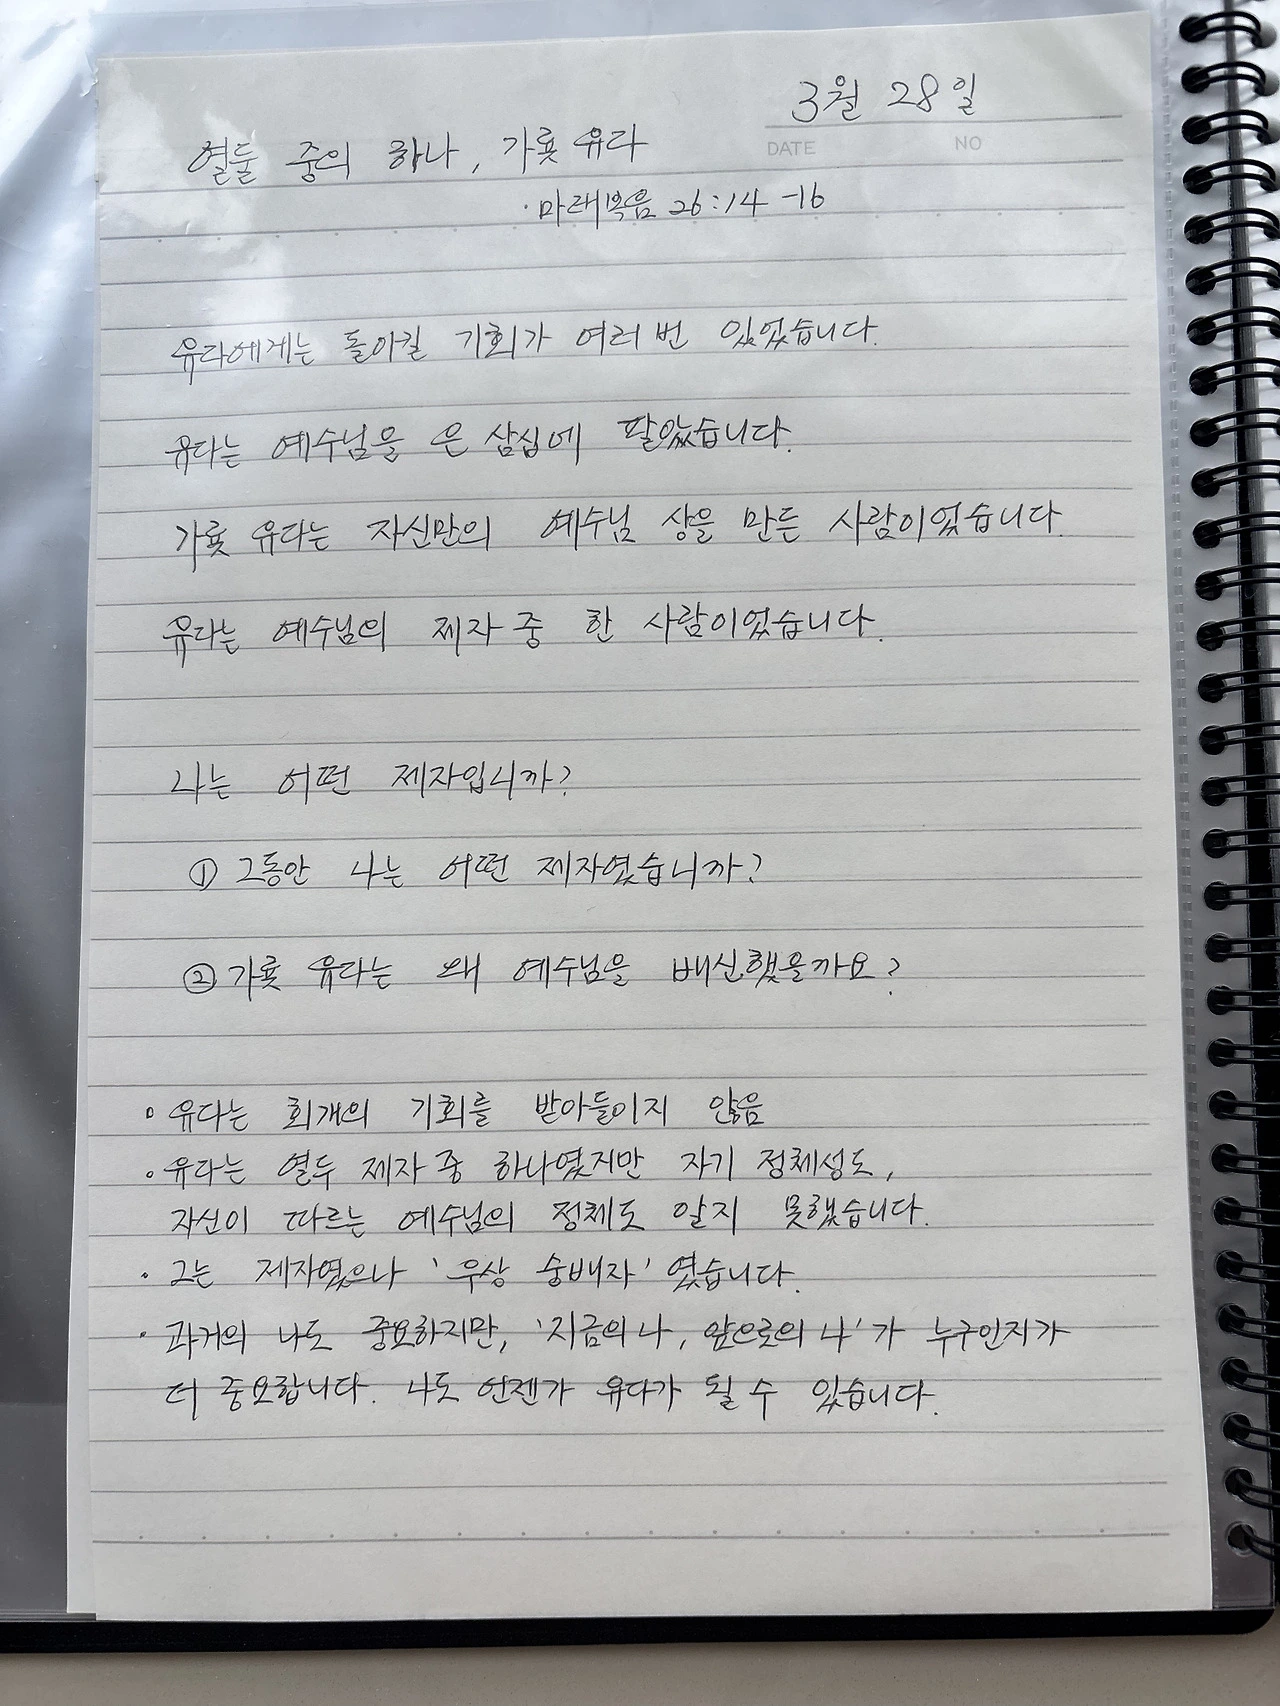 3월 28일
DATE NO
열둘 중의 하나, 가룟 유다
·마태복음 26:14-16
유다에게는 돌이킬 기회가 여러 번 있었습니다.
유다는 예수님을 은 삼십에 팔았습니다.
가룟 유다는 자신만의 예수님 상을 만든 사람이었습니다.
유다는 예수님의 제자 중 한 사람이었습니다.
나는 어떤 제자입니까?
① 그동안 나는 어떤 제자였습니까?
② 가룟 유다는 왜 예수님을 배신했을까요?
• 유다는 회개의 기회를 받아들이지 않음
• 유다는 열두 제자 중 하나였지만 자기 정체성도,
자신이 따르는 예수님의 정체도 알지 못했습니다.
• 그는 제자였으나 '우상 숭배자' 였습니다.
• 과거의 나도 중요하지만, '지금의 나, 앞으로의 나'가 누구인지가
더 중요합니다. 나도 언젠가 유다가 될 수 있습니다.